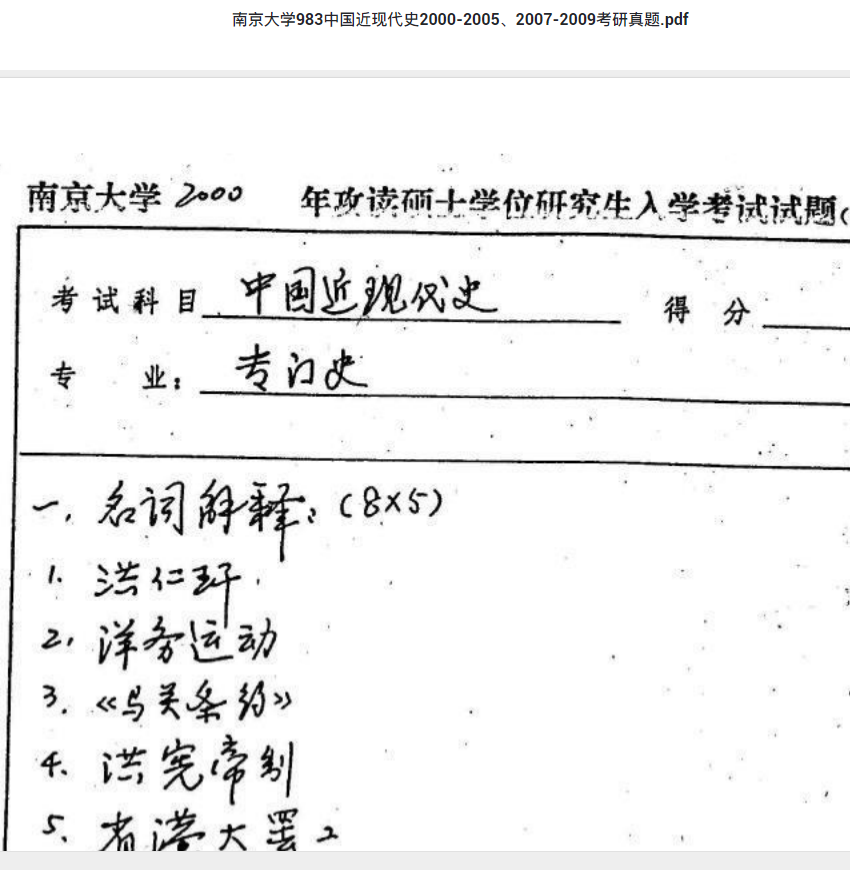 南京大学983中国近现代史2000-2005、2007-2009考研真题.pdf
南京大学 2000 年攻读硕士学位研究生入学考试试题(
考试科目 中国近现代史 得分
专 业: 专门史
一、名词解释:(8×5)
1. 洪仁玕.
2. 洋务运动
3. 《马关条约》
4、洪宪帝制
5、省港大罢工